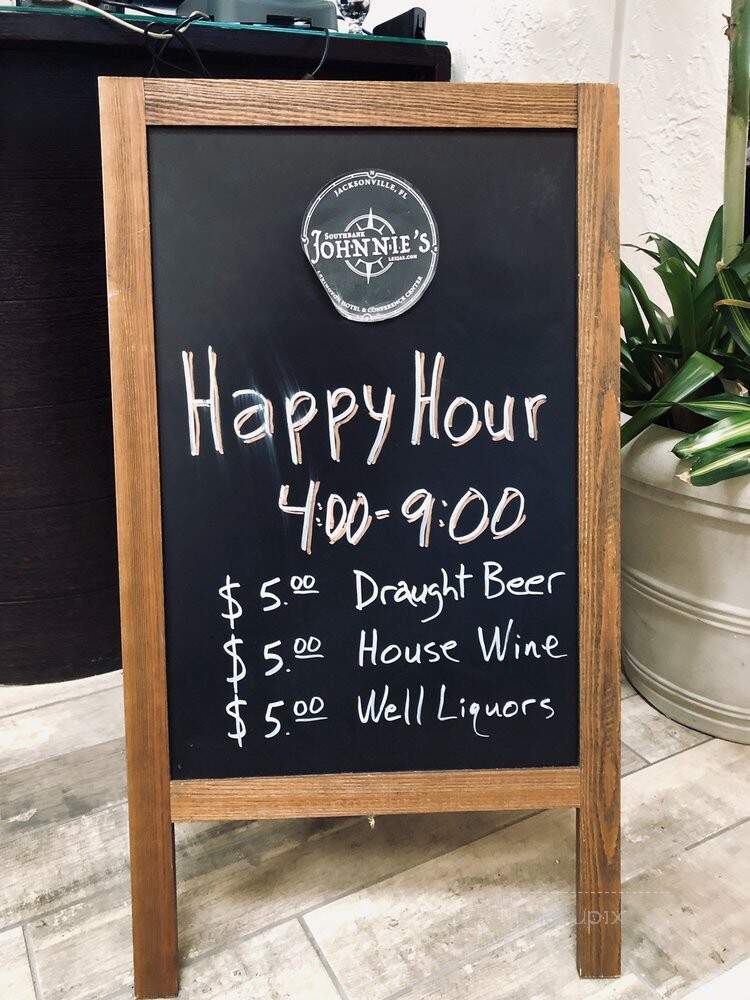 JACKSONVILLE, FL
SOUTHBANK
JOHNNIE'S
LEXJAX.COM
LEXINGTON HOTEL & CONFERENCE CENTER
Happy Hour
4:00-9:00
$5.00 Draught Beer
$5.00 House Wine
$5.00 Well Liquors